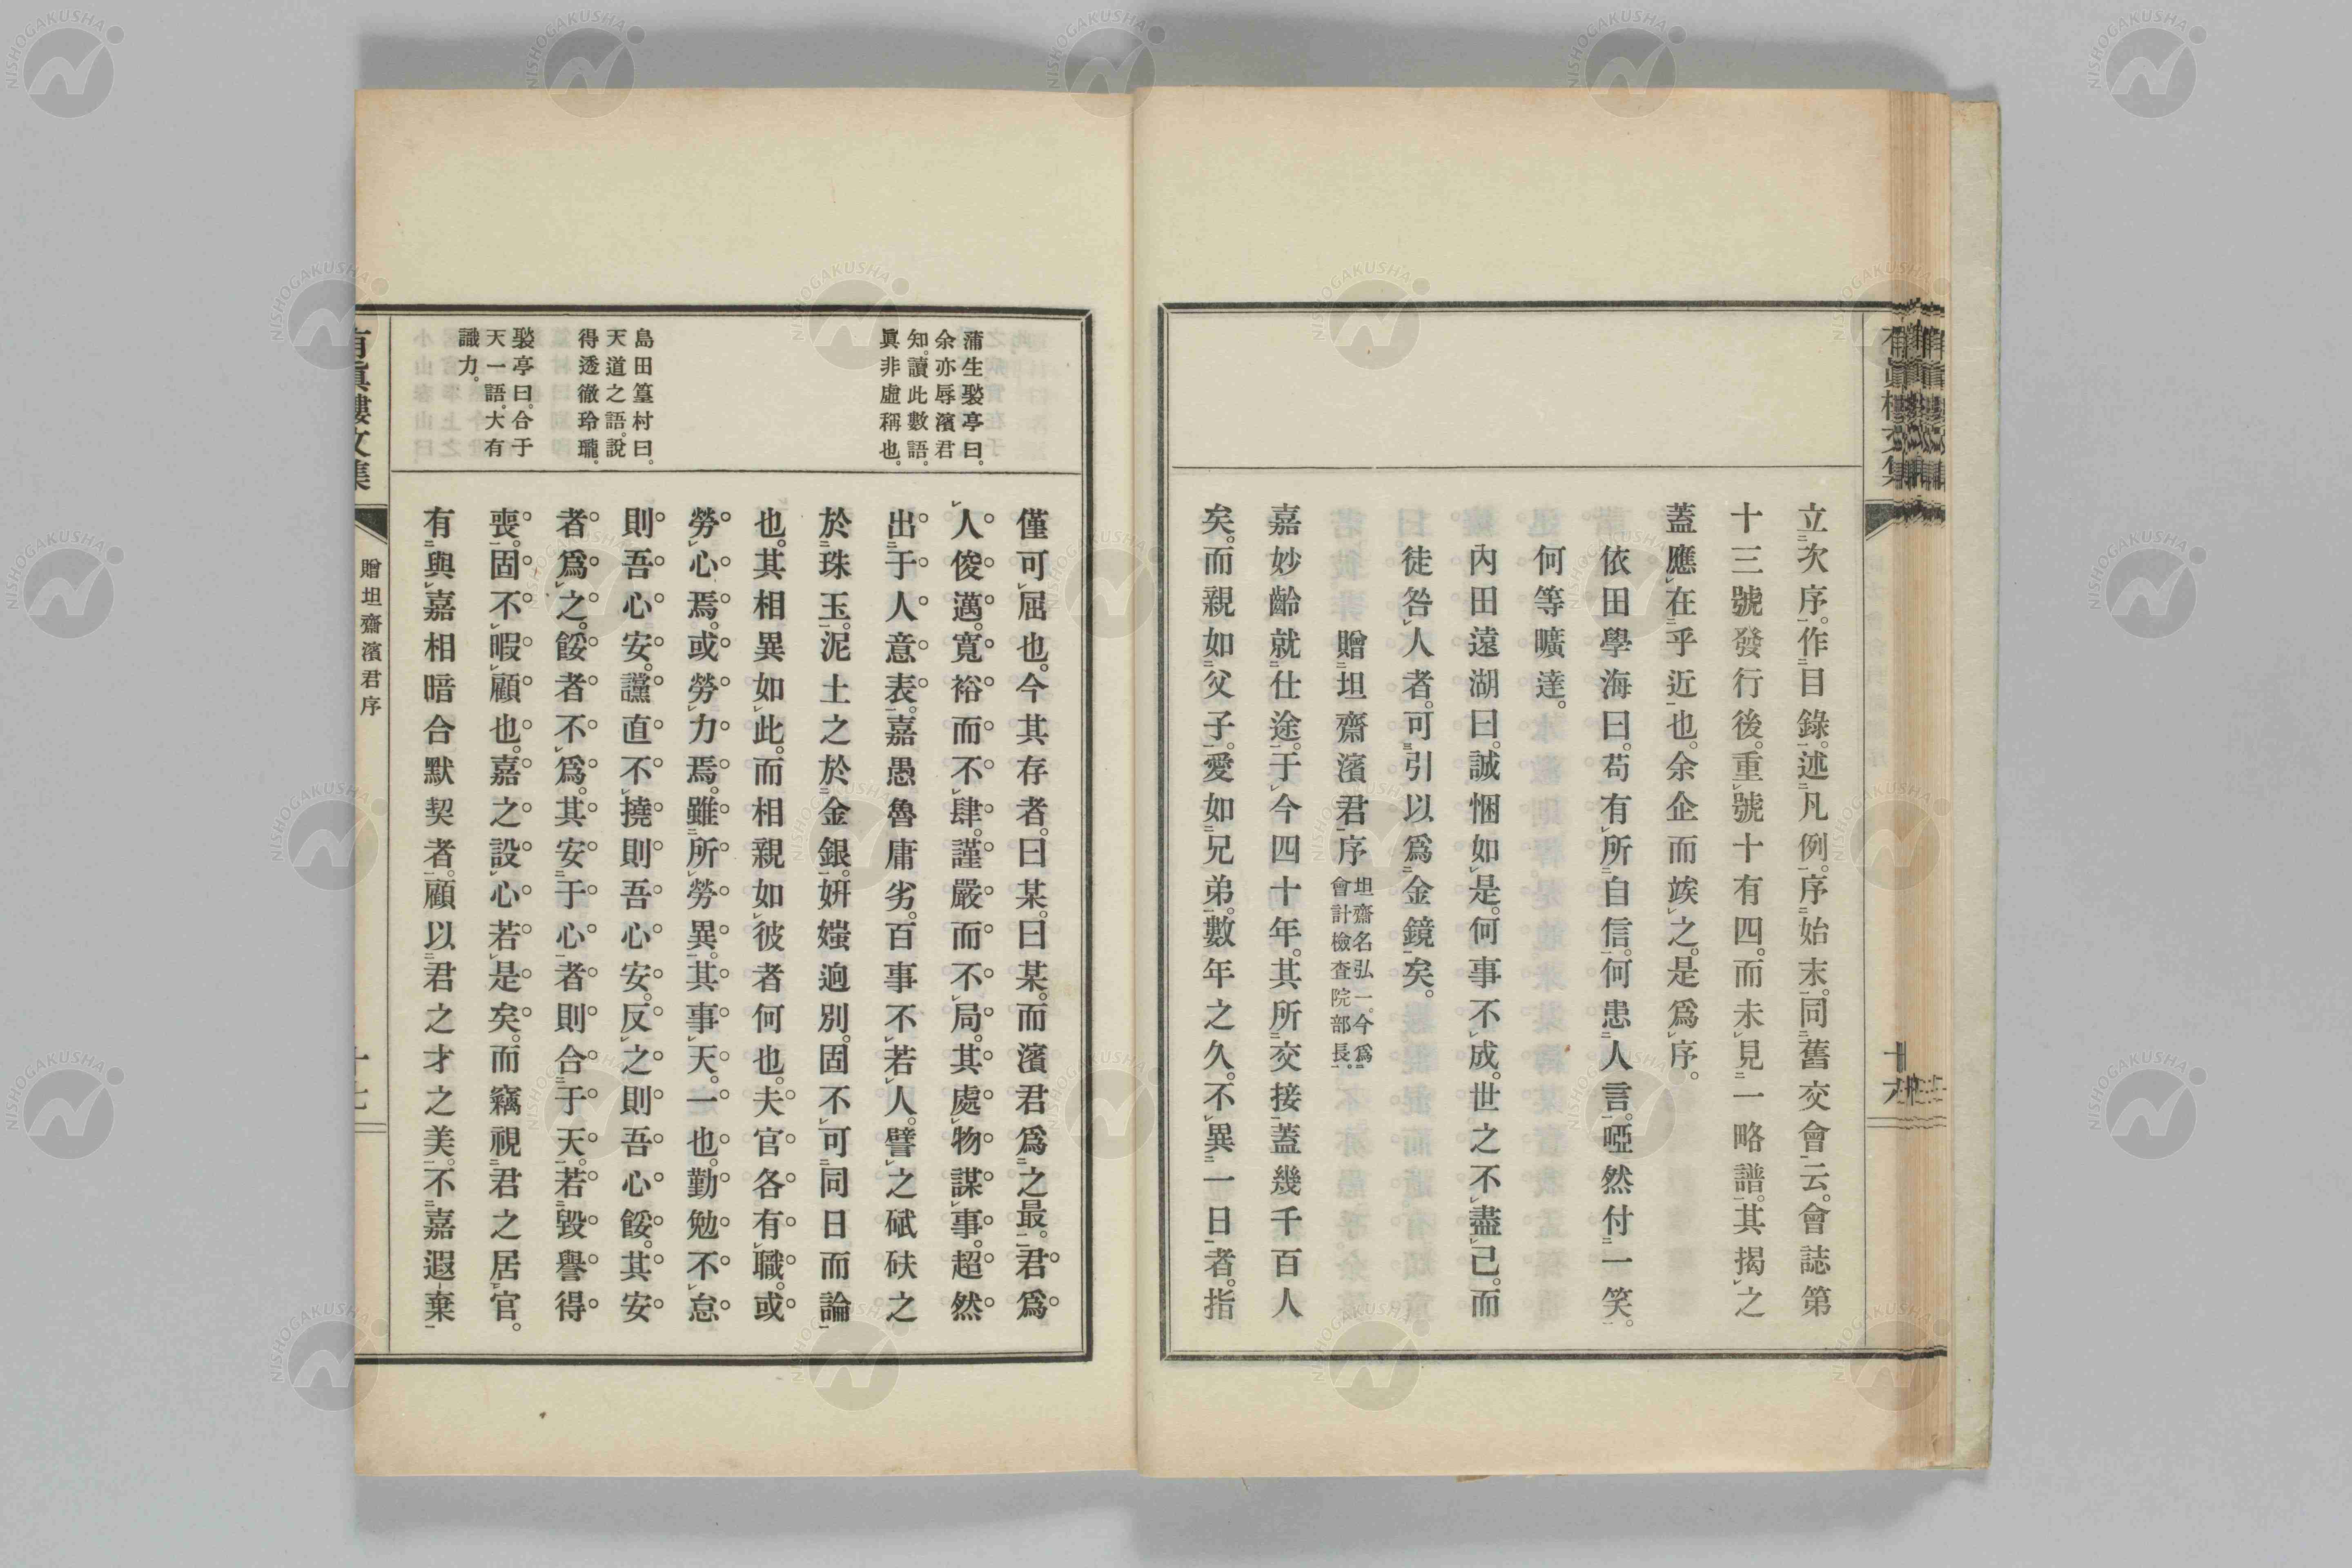 立次序。作目錄。述凡例。序始末。同舊交會云。會誌第
十三號發行後。重號十有四。而未見一略譜。其揭之
蓋應在乎近也。余企而竢之。是爲序。
依田學海曰。苟有所自信。何患人言。啞然付一笑。
何等曠達。
內田遠湖曰。誠悃如是。何事不成。世之不盡己。而
徒咎人者。可引以爲金鏡矣。
贈坦齋濱君序 坦齋名弘一。今爲
會計檢査院部長。
嘉妙齡就仕途。于今四十年。其所交接蓋幾千百人
矣。而親如父子。愛如兄弟。數年之久。不異一日者。指
蒲生褧亭曰。
余亦辱濱君
知。讀此數語。
眞非虛稱也。
島田篁村曰。
天道之語。說
得透徹玲瓏。
褧亭曰。合于
天一語。大有
識力。
僅可屈也。今其存者。曰某。曰某。而濱君爲之最。君爲
人俊邁。寬裕而不肆。謹嚴而不局。其處物謀事。超然
出于人意表。嘉愚魯庸劣。百事不若人。譬之碔砆之
於珠玉。泥土之於金銀。妍媸逈別。固不可同日而論
也。其相異如此。而相親如彼者何也。夫官各有職。或
勞心焉。或勞力焉。雖所勞異。其事天。一也。勤勉不怠
則吾心安。讜直不撓則吾心安。反之則吾心餒。其安
者爲之。餒者不爲。其安于心者則合于天。若毀譽得
喪。固不暇顧也。嘉之設心若是矣。而竊視君之居官。
有與嘉相暗合默契者。顧以君之才之美。不嘉遐棄
有眞樓文集
贈坦齋濱君序
十七